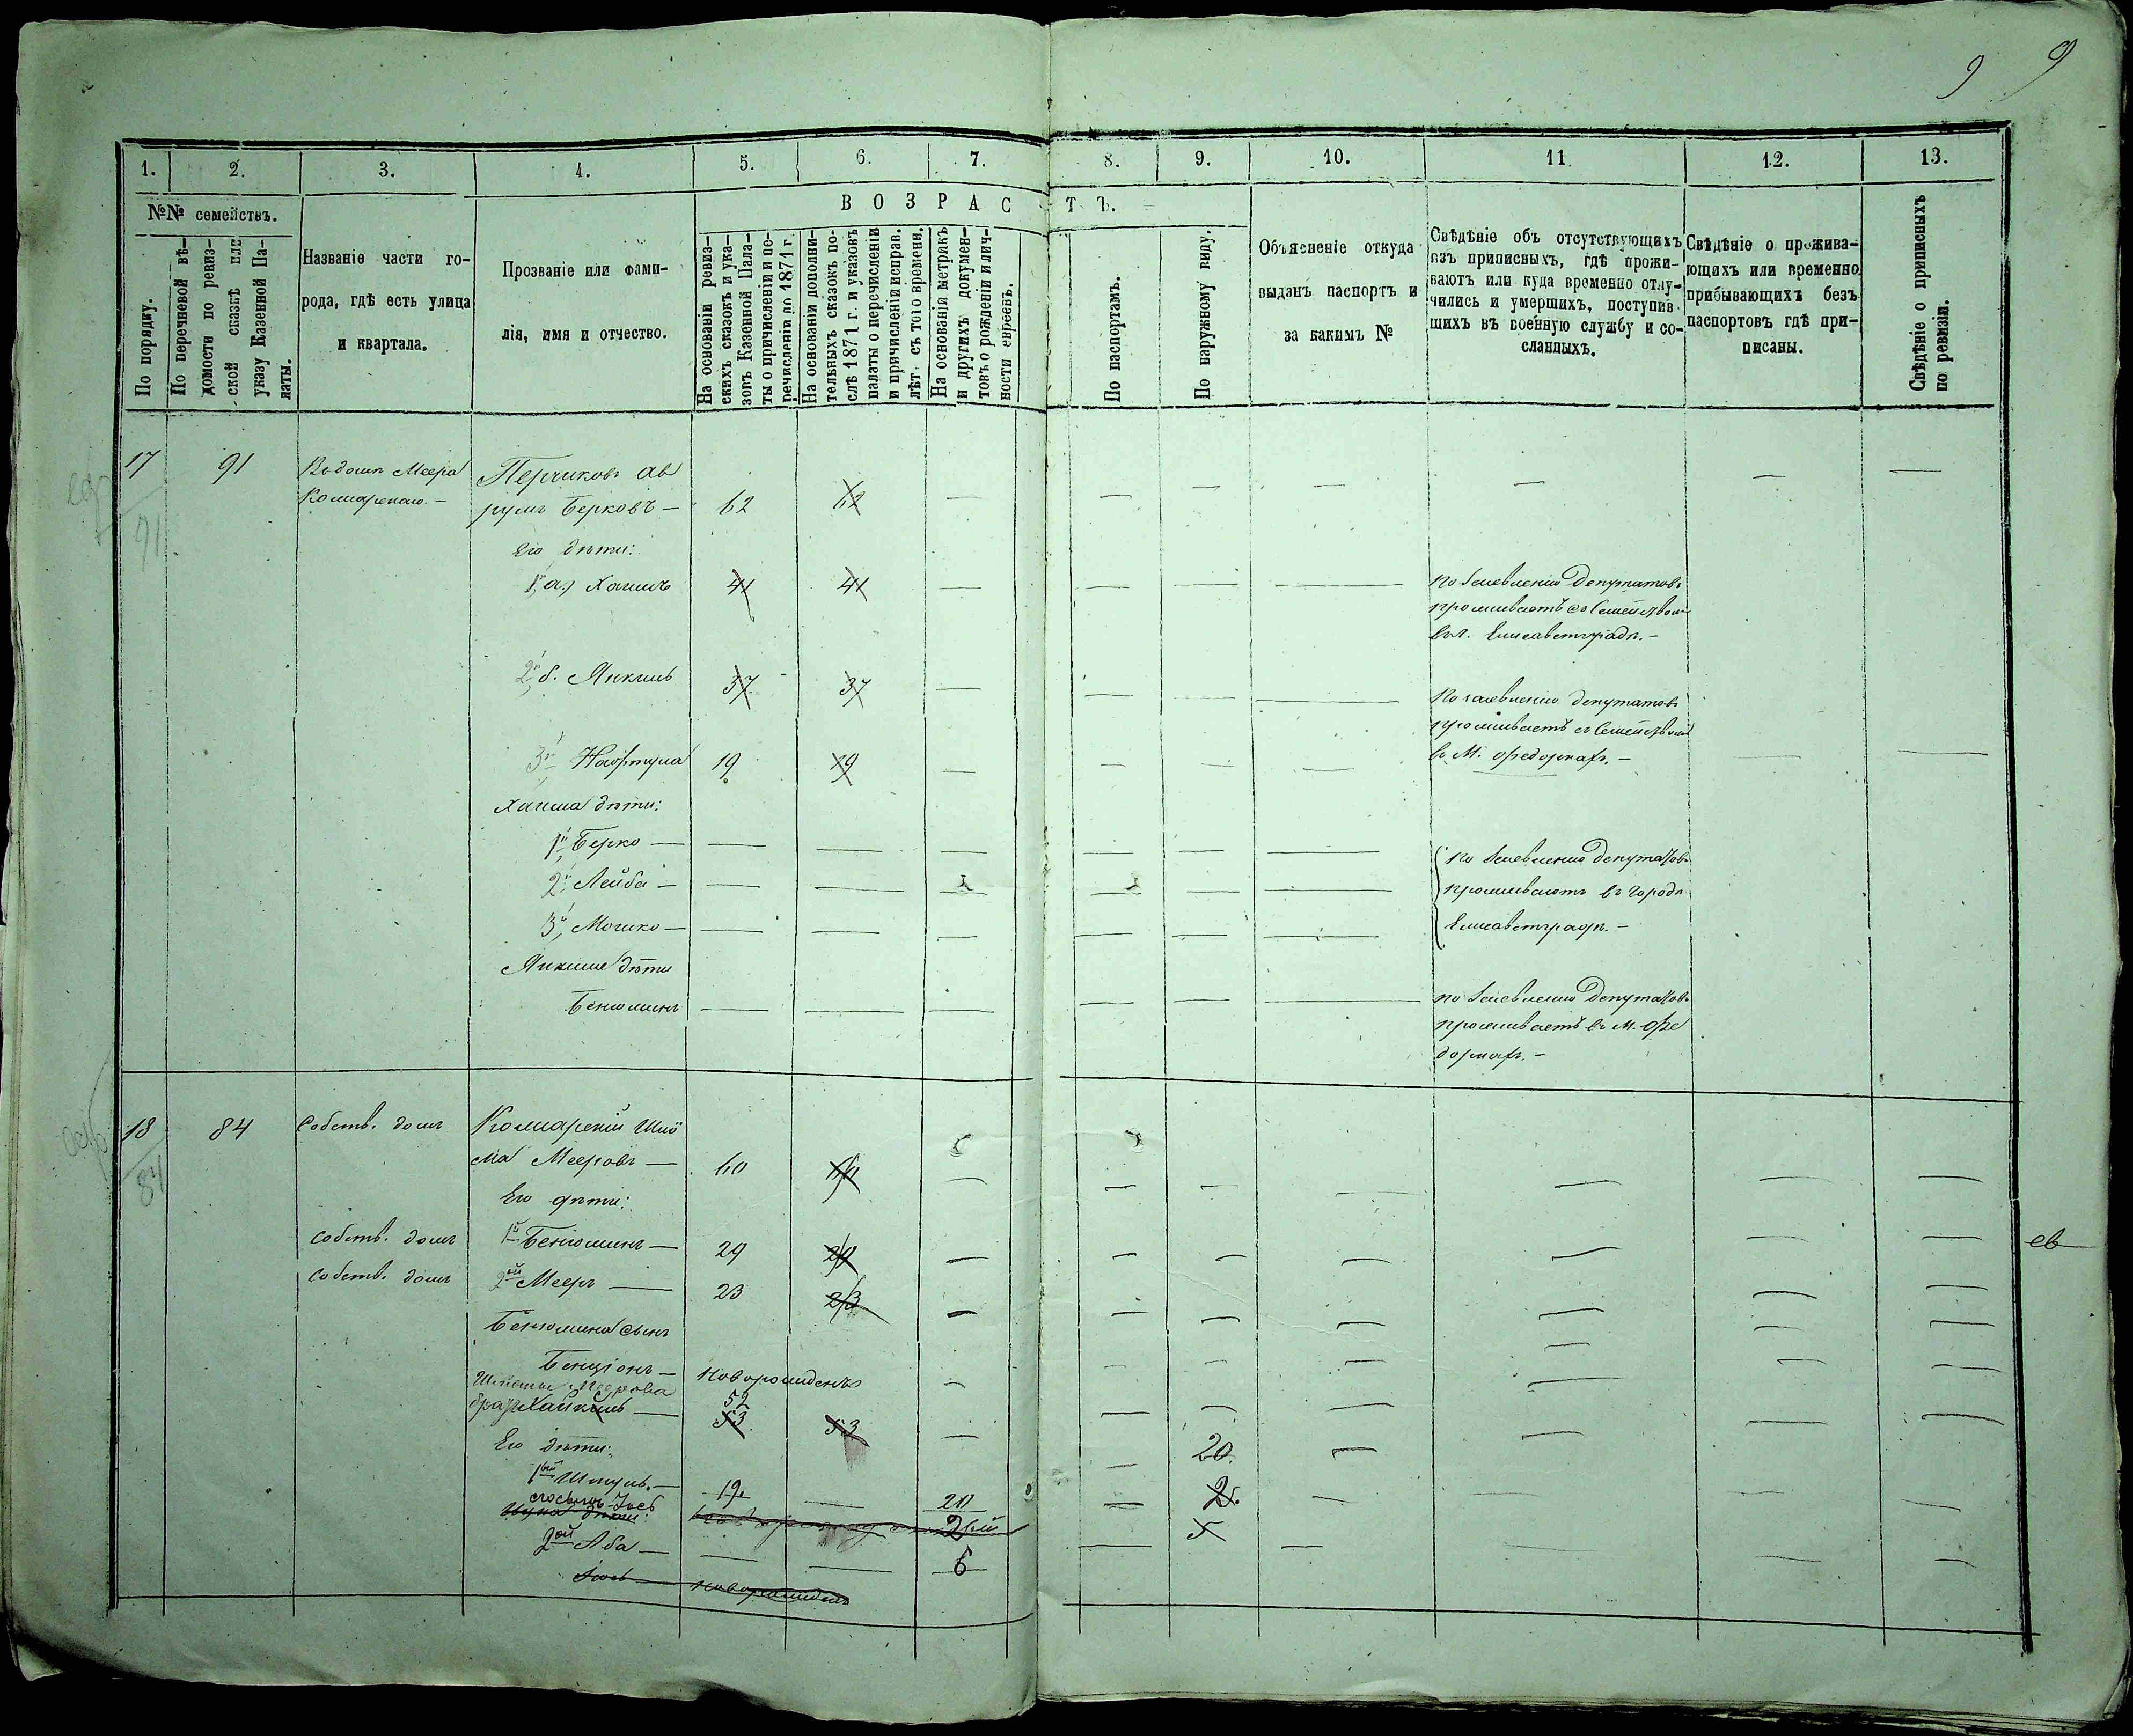 9 9
1. 2. 3. 4. 5. 6. 7. 8. 9. 10. 11. 12. 13.
№№ семействъ.
По порядку.
По перечневой вѣ-
домости по ревиз-
ской сказкѣ или
указу Казенной Па-
латы.
Названіе части го-
рода, гдѣ есть улица
и квартала.
Прозваніе или фами-
лія, имя и отчество.
ВОЗРАСТЪ.
На основаніи ревиз-
скихъ сказокъ и ука-
зовъ Казенной Пала-
ты о причисленіи и пе-
речисленіи до 1871 г.
На основаніи дополни-
тельныхъ сказокъ по-
слѣ 1871 г. и указовъ
палаты о перечисленіи
и причисленіи исправ.
лѣт. съ того времени.
На основаніи метрикъ
и другихъ докумен-
товъ о рожденіи и лич-
ности евреевъ.
По паспортамъ.
По наружному виду.
Объясненіе откуда
выданъ паспортъ и
за какимъ №
Свѣдѣніе объ отсутствующихъ
изъ приписныхъ, гдѣ прожи-
ваютъ или куда временно отлу-
чились и умершихъ, поступив-
шихъ въ военную службу и со-
сланныхъ.
Свѣдѣніе о прожива-
ющихъ или временно
прибывающихъ безъ
паспортовъ гдѣ при-
писаны.
Свѣдѣніе о приписныхъ
по ревизіи.
17 91 Въ домѣ Меера Перчиковъ Ав
Комарскаго. — румъ Берковъ — 62 62 — — — — — — —
91
Его дѣти:
1й а.) Хаимъ 41 41 — — — — По заявленію депутатовъ
проживаетъ со семействомъ
въ г. Елисаветградѣ. —
2й б. Янкель 37 37 — — — — По заявленію депутатовъ
проживаетъ съ семействомъ
3й Нафтула 19 19 — — — — въ М. Федоркахъ. — — —
Хаима дѣти:
1й Берко — — — — — — — По заявленію депутатовъ
2й Лейба — — — — — — — проживаютъ въ городѣ
3й Мошко — — — — — — — Елисаветградѣ. —
Янкеля дѣти
Бенюминъ — — — — — — По заявленію депутатовъ
проживаетъ въ м. Фе
доркахъ. —
18 84 Собств. домъ Комарскій Шлё
84 ма Мееровъ — 60 60 — — — — — — —
Его дѣти:
Собств. домъ 1й Бенюминъ — 29 29 — — — — — — — ев
Собств. домъ 2ой Мееръ — 23 23 — — — — — — —
Бенюмина сынъ
Бенціонъ — новорожденъ — — — — — — —
Меерова
братъ Хайкель — 52
53 53 — — — — — — —
Его дѣти:
1ый Шмуль. — 19. — 20 — 20. — — — —
его сынъ Іосъ 2 2.
дѣти:
2ой Аба — — — 6 — 5 — — — —
Іосъ — новорожденъ